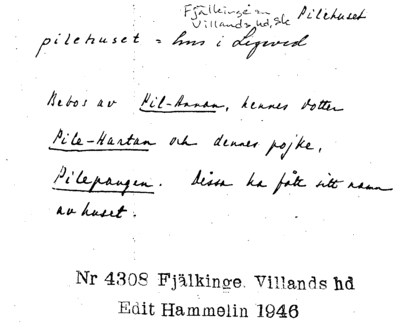 Fjälkinge sn
Villands hd, Sk
Pilehuset
pilehuset = hus i Legeved
Bebos av Pil-Annan, hennes dotter
Pile-Hartan och dennes pojke,
Pilepaugen. Dissa ha fått sitt namn
av huset.
Nr 4308 Fjälkinge. Villands hd
Edit Hammelin 1946